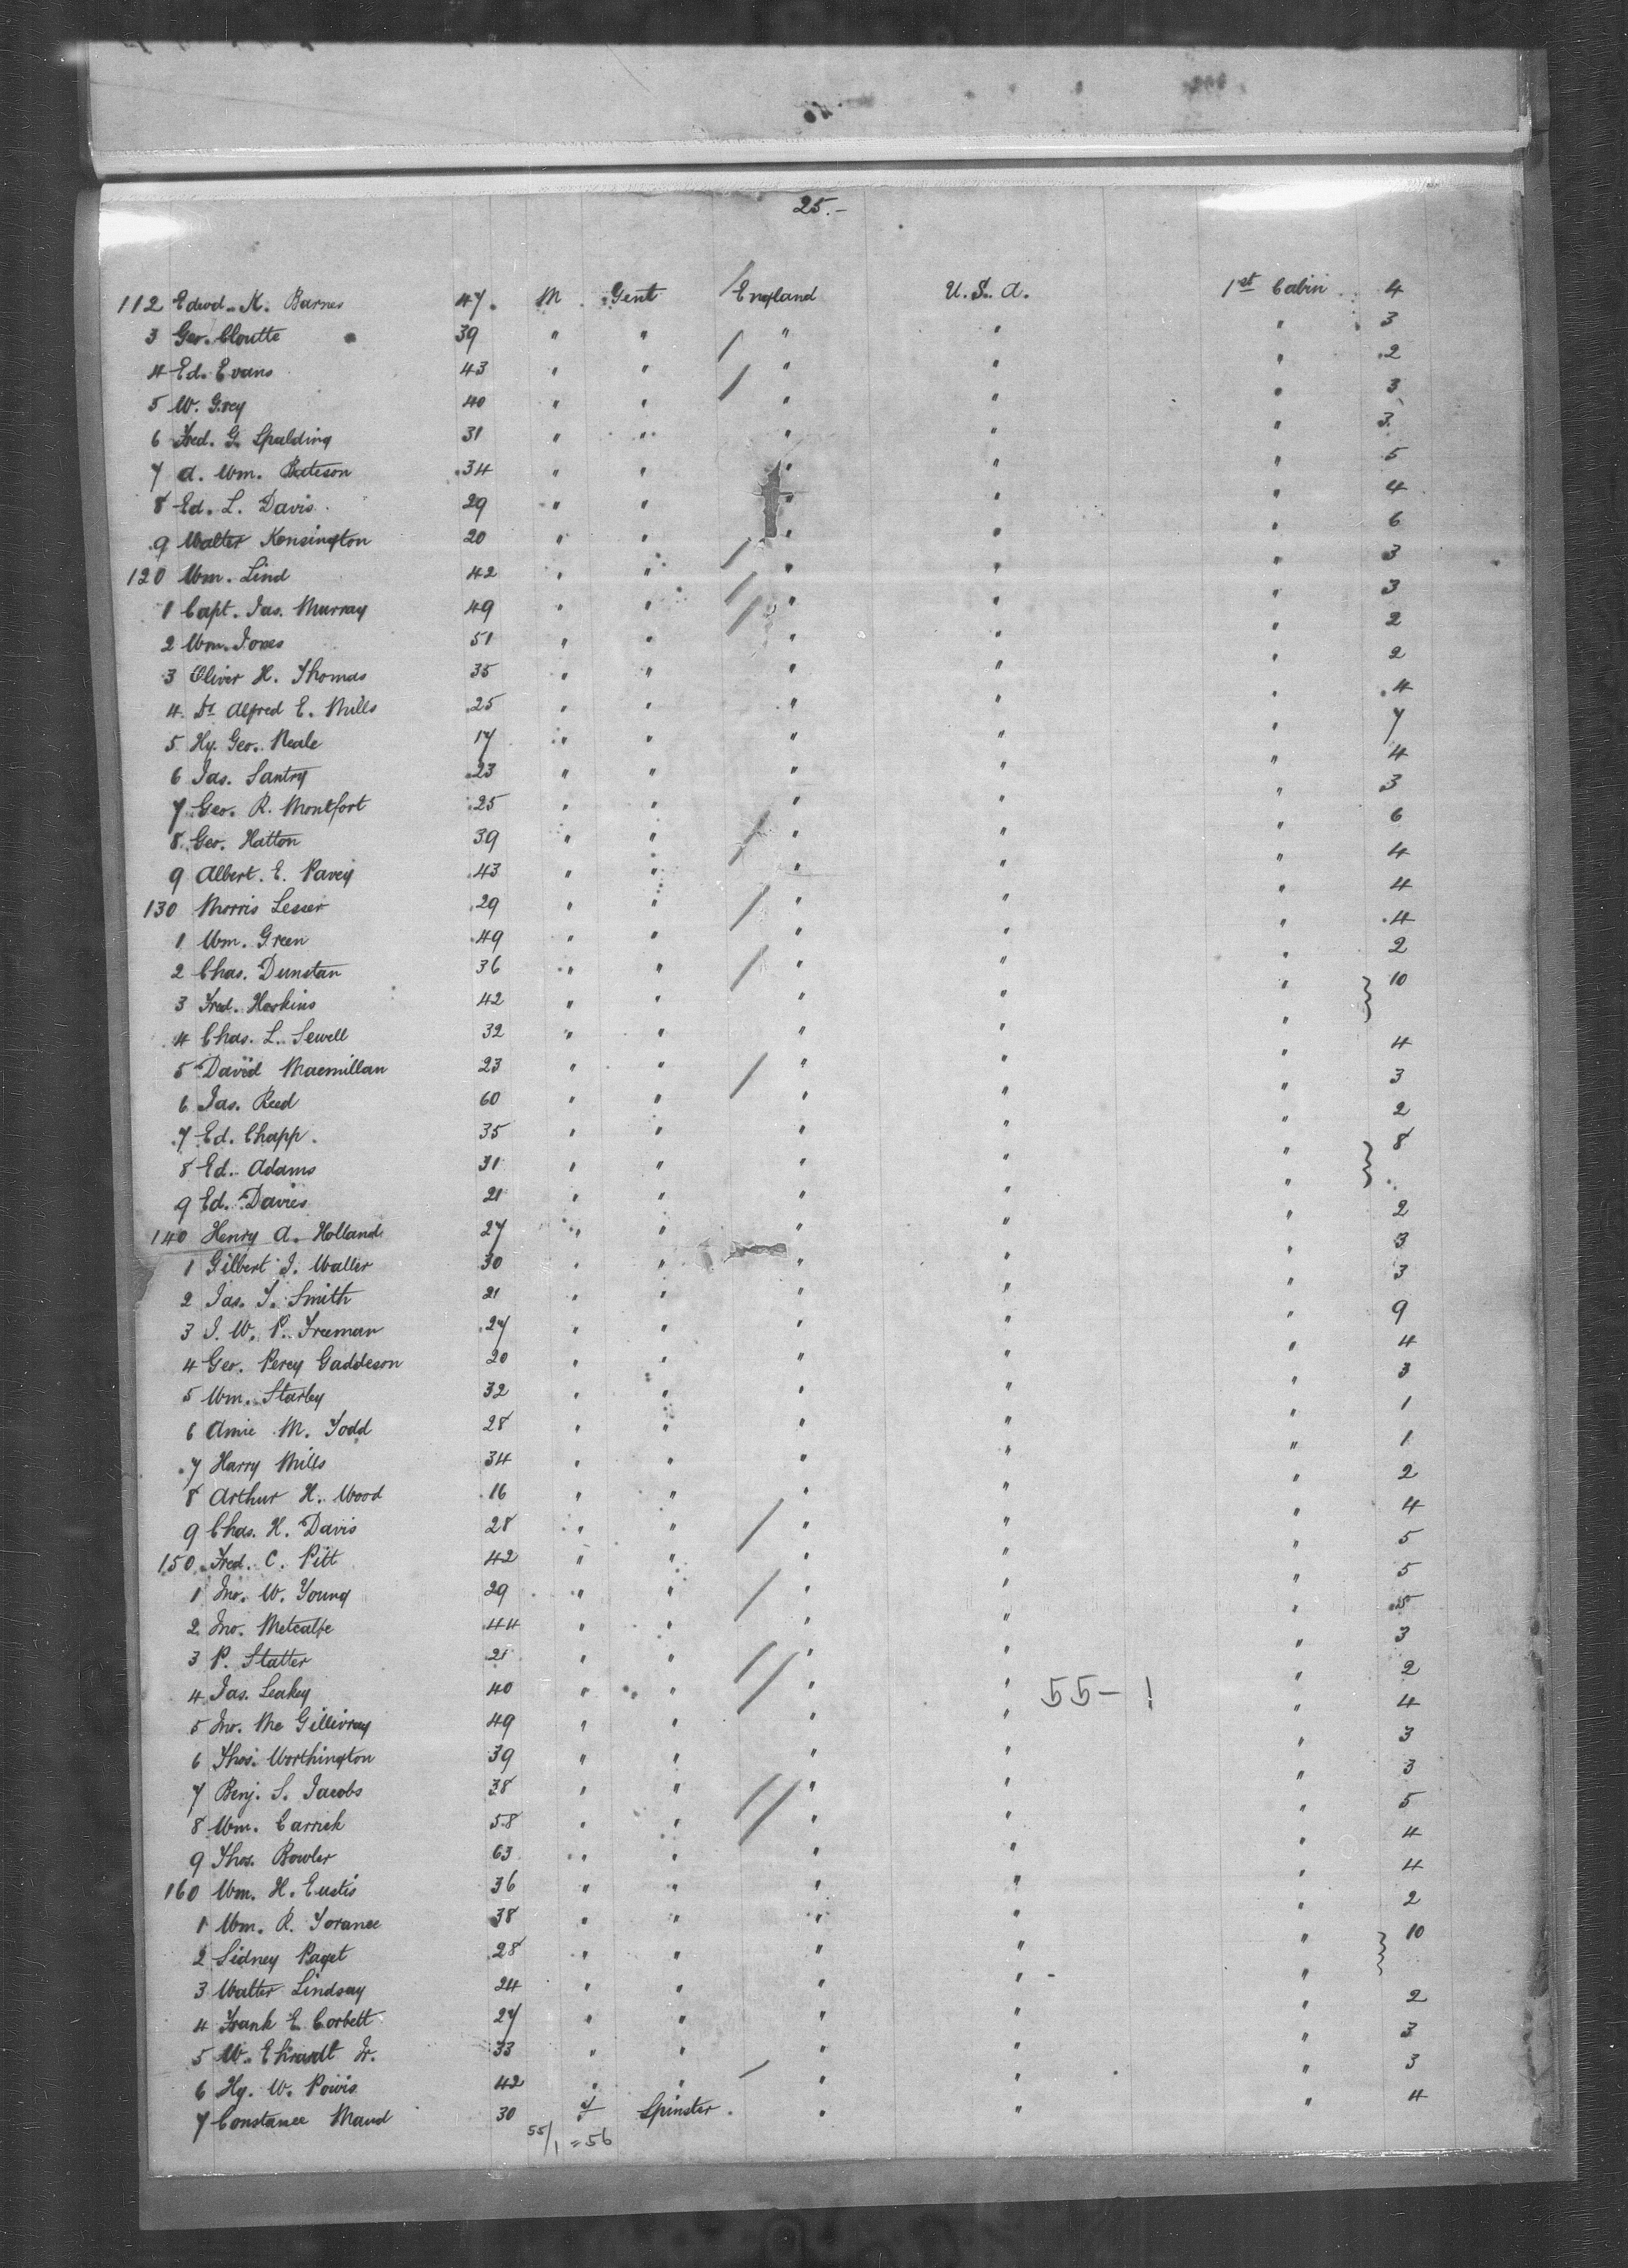 25.-
112 Edwd. K. Barnes 47. M Gent England U.S.A. 1st Cabin 4
3 Geo. Cloutte 39 " " " " " 3
4 Ed. Evans 43 " " " " " 2
5 W. Grey 40 " " " " " 3
6 Fred. G. Spalding 31 " " " " " 3
7 A. Wm. Bateson 34 " " " " " 5
8 Ed. L. Davis 29 " " " " " 4
9 Walter Kensington 20 " " " " " 6
120 Wm. Lind 42 " " " " " 3
1 Capt. Jas. Murray 49 " " " " " 3
2 Wm. Jones 51 " " " " " 2
3 Oliver H. Thomas 35 " " " " " 2
4 Dr Alfred E. Mills 25 " " " " " 4
5 Hy. Geo. Neale 17 " " " " " 7
6 Jas. Santry 23 " " " " " 4
7 Geo. R. Montfort 25 " " " " " 3
8 Geo. Hatton 39 " " " " " 6
9 Albert. E. Pavey 43 " " " " " 4
130 Morris Lesser 29 " " " " " 4
1 Wm. Green 49 " " " " " 4
2 Chas. Dunstan 36 " " " " " 2
3 Fred. Hoskins 42 " " " " " 10
4 Chas. L. Sewell 32 " " " " "
5 David Macmillan 23 " " " " " 4
6 Jas. Reed 60 " " " " " 3
7 Ed. Chapp. 35 " " " " " 2
8 Ed. Adams 31 " " " " " 8
9 Ed. Davies 21 " " " " "
140 Henry A. Holland 27 " " " " " 2
1 Gilbert J. Waller 30 " " " " " 3
2 Jas. T. Smith 21 " " " " " 3
3 J. W. P. Freeman 27 " " " " " 9
4 Geo. Percy Gaddeson 20 " " " " " 4
5 Wm. Starley 32 " " " " " 3
6 Amie M. Todd 28 " " " " " 1
7 Harry Mills 34 " " " " " 1
8 Arthur H. Wood 16 " " " " " 2
9 Chas. H. Davis 28 " " " " " 4
150 Fred. C. Pitt 42 " " " " " 5
1 Jno. W. Young 29 " " " " " 5
2 Jno. Metcalfe 44 " " " " " 5
3 P. Statter 21 " " " " " 3
4 Jas. Leakey 40 " " " " 55- 1 " 2
5 Jno. Mc Gillivray 49 " " " " " 4
6 Thos. Worthington 39 " " " " " 3
7 Benj. S. Jacobs 38 " " " " " 3
8 Wm. Carrick 58 " " " " " 5
9 Thos. Bowler 63 " " " " " 4
160 Wm. H. Eustis 36 " " " " " 4
1 Wm. R. Torance 38 " " " " " 2
2 Sidney Paget 28 " " " " " 10
3 Walter Lindsay 24 " " " " "
4 Frank E. Corbett 27 " " " " " 2
5 W. Ehrardt Jr. 33 " " " " " 3
6 Hy. W. Powis 42 " " " " " 3
7 Constance Maud 30 F Spinster. " " " 4
55/1 = 56